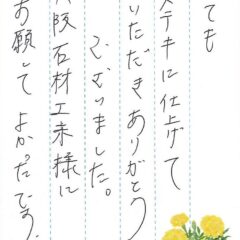 ても
ステキに仕上げて
いただきありがとう
ございました。
大阪石材工業様に
お願して よかったです。